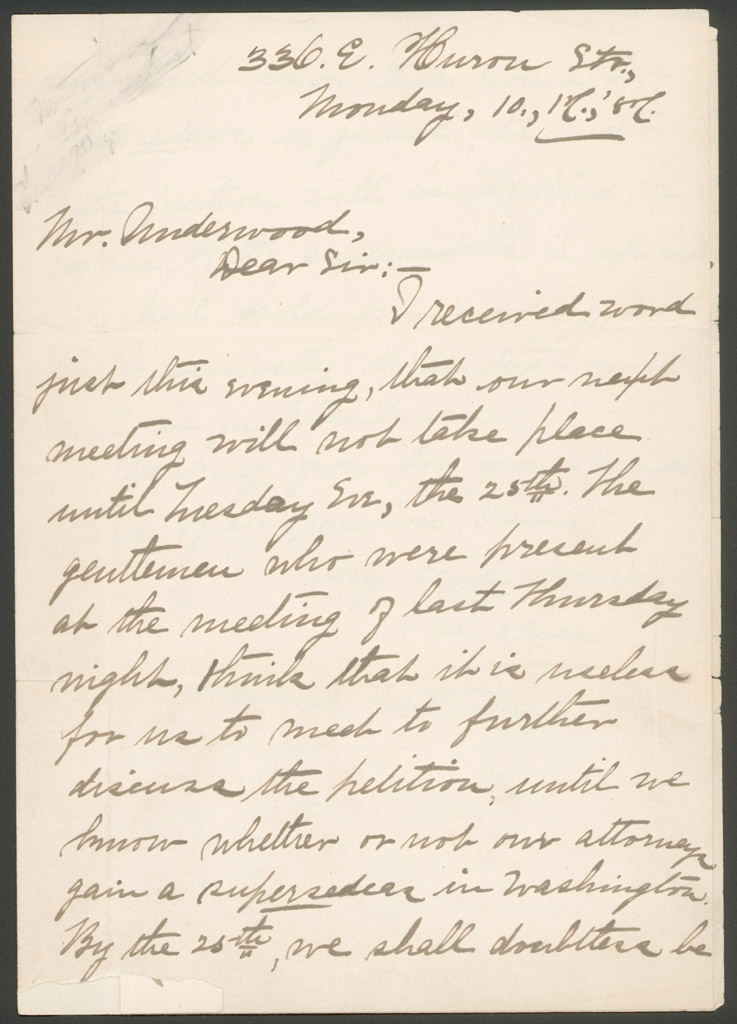 336. E. Huron Str.,
Monday, 10., 17.,'87.
Mr. Underwood,
Dear Sir:—
I received word
just this evening, that our next
meeting will not take place
until Tuesday Eve, the 25th. The
gentlemen who were present
at the meeting of last Thursday
night, think that it is useless
for us to meet to further
discuss the petition, until we
know whether or not our attorneys
gain a supersedeas in Washington.
By the 25th, we shall doubtless be